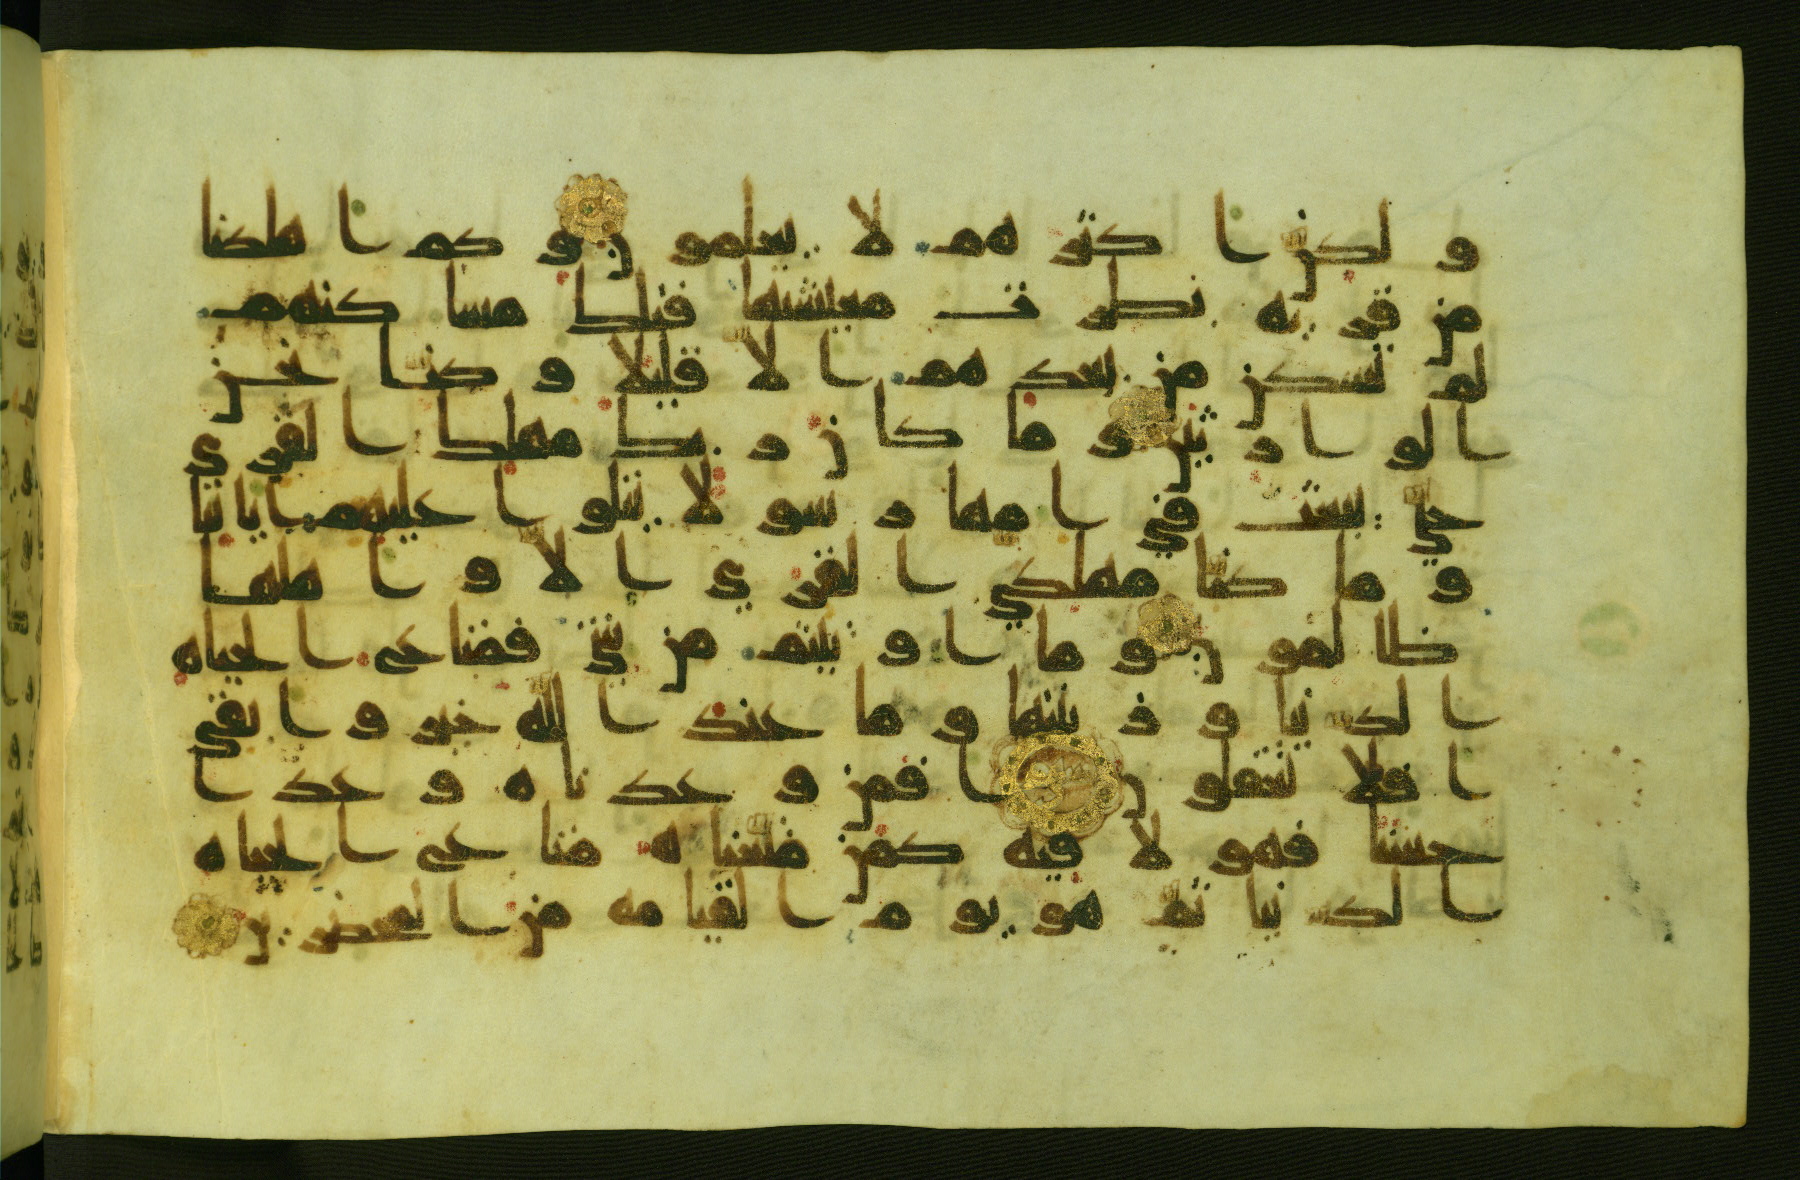 ولكن اكثرهم لا يعلمون وكم اهلكنا
من قريه بطرت معيشتها فتلك مساكنهم
لم تسكن من بعدهم الا قليلا وكنا نحن
الوارثين وما كان ربك مهلك القرى
حتى يبعث في امها رسولا يتلوا عليهم اياتنا
وما كنا مهلكي القرى الا واهلها
ظالمون وما اوتيتم من شي فمتاع الحياه
الدنيا وزينتها وما عند الله خير وابقى
افلا تعقلون افمن وعدناه وعدا
حسنا فهو لاقيه كمن متعناه متاع الحياه
الدنيا ثم هو يوم القيامه من المحضرين